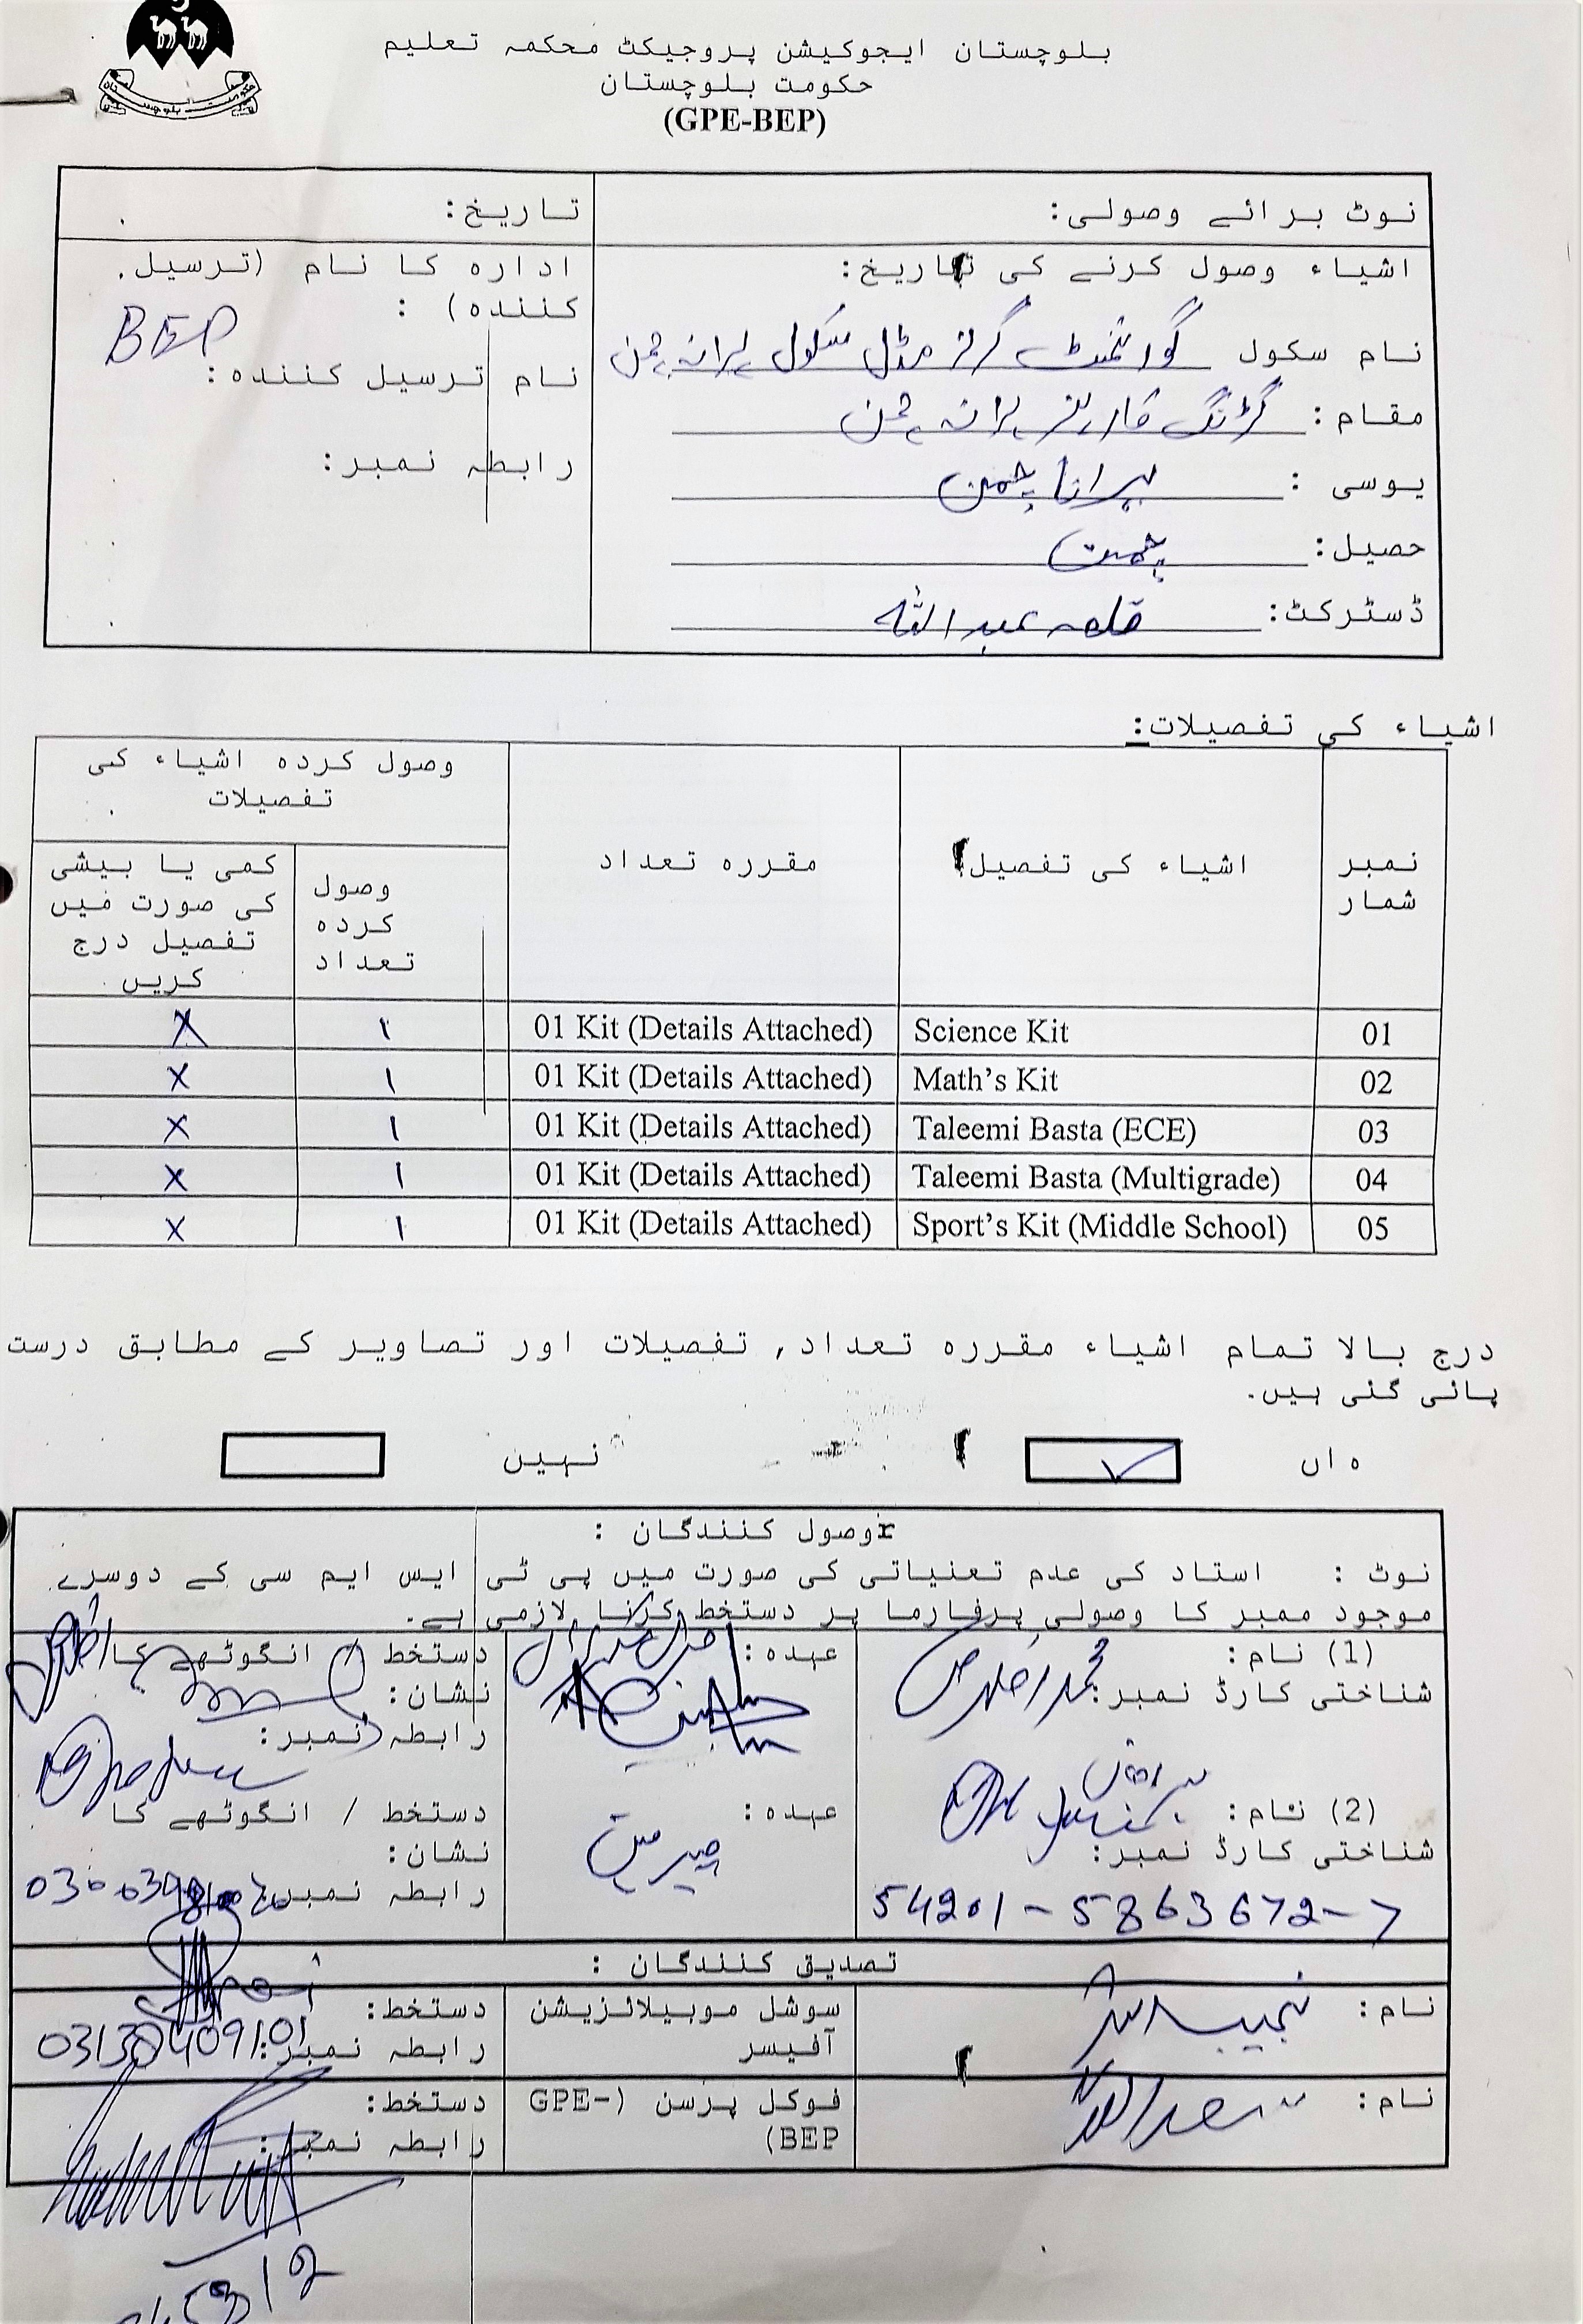 بلوچستان ایجوکیشن پروجیکٹ محکمہ تعلیم
حکومت بلوچستان
(GPE-BEP)
نوٹ برائے وصولی:
تاریخ:
اشیاء وصول کرنے کی تاریخ:
نام سکول گورنمنٹ گرلز مڈل سکول پرانہ چمن
مقام: پرانہ چمن
یوسی : پرانا چمن
حصیل: چمن
ڈسٹرکٹ: قلعہ عبداللہ
ادارہ کا نام (ترسیل
کنندہ) :
BEP
نام ترسیل کنندہ:
رابطہ نمبر:
اشیاء کی تفصیلات:
نمبر شمار
اشیاء کی تفصیل
مقررہ تعداد
وصول کردہ اشیاء کی
تفصیلات
وصول
کردہ
تعداد
کمی یا بیشی
کی صورت میں
تفصیل درج
کریں
01 Science Kit 01 Kit (Details Attached) ۱ X
02 Math's Kit 01 Kit (Details Attached) ۱ X
03 Taleemi Basta (ECE) 01 Kit (Details Attached) ۱ X
04 Taleemi Basta (Multigrade) 01 Kit (Details Attached) ۱ X
05 Sport's Kit (Middle School) 01 Kit (Details Attached) ۱ X
درج بالا تمام اشیاء مقررہ تعداد, تفصیلات اور تصاویر کے مطابق درست
پائی گئی ہیں.
ہاں ✓ نہیں
rوصول کنندگان :
نوٹ : استاد کی عدم تعنیاتی کی صورت میں پی ٹی ایس ایم سی کے دوسرے
موجود ممبر کا وصولی پرفارما پر دستخط کرنا لازمی ہے.
(1) نام:
شناختی کارڈ نمبر: محمد
عہدہ:
دستخط / انگوٹھے کا
نشان:
رابطہ نمبر:
(2) نام:
شناختی کارڈ نمبر:
54201-5863672-7
عہدہ:
چیرمین
دستخط / انگوٹھے کا
نشان:
رابطہ نمبر:
تصدیق کنندگان :
نام: نجیب اللہ
سوشل موبیلائزیشن
آفیسر
دستخط:
رابطہ نمبر:
نام: سعداللہ
فوکل پرسن (GPE-
BEP)
دستخط:
رابطہ نمبر: